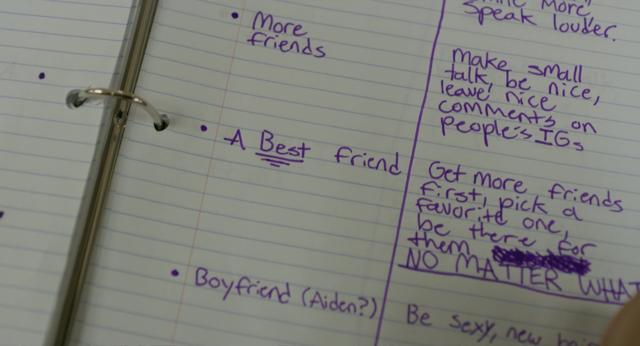 speak louder.
More
friends
Make small
talk, be nice,
leave nice
comments on
people's IGs
A Best friend
Get more friends
first, pick a
favorite one,
be there for
them
NO MATTER WHAT
Boyfriend (Aiden?)
Be sexy, new